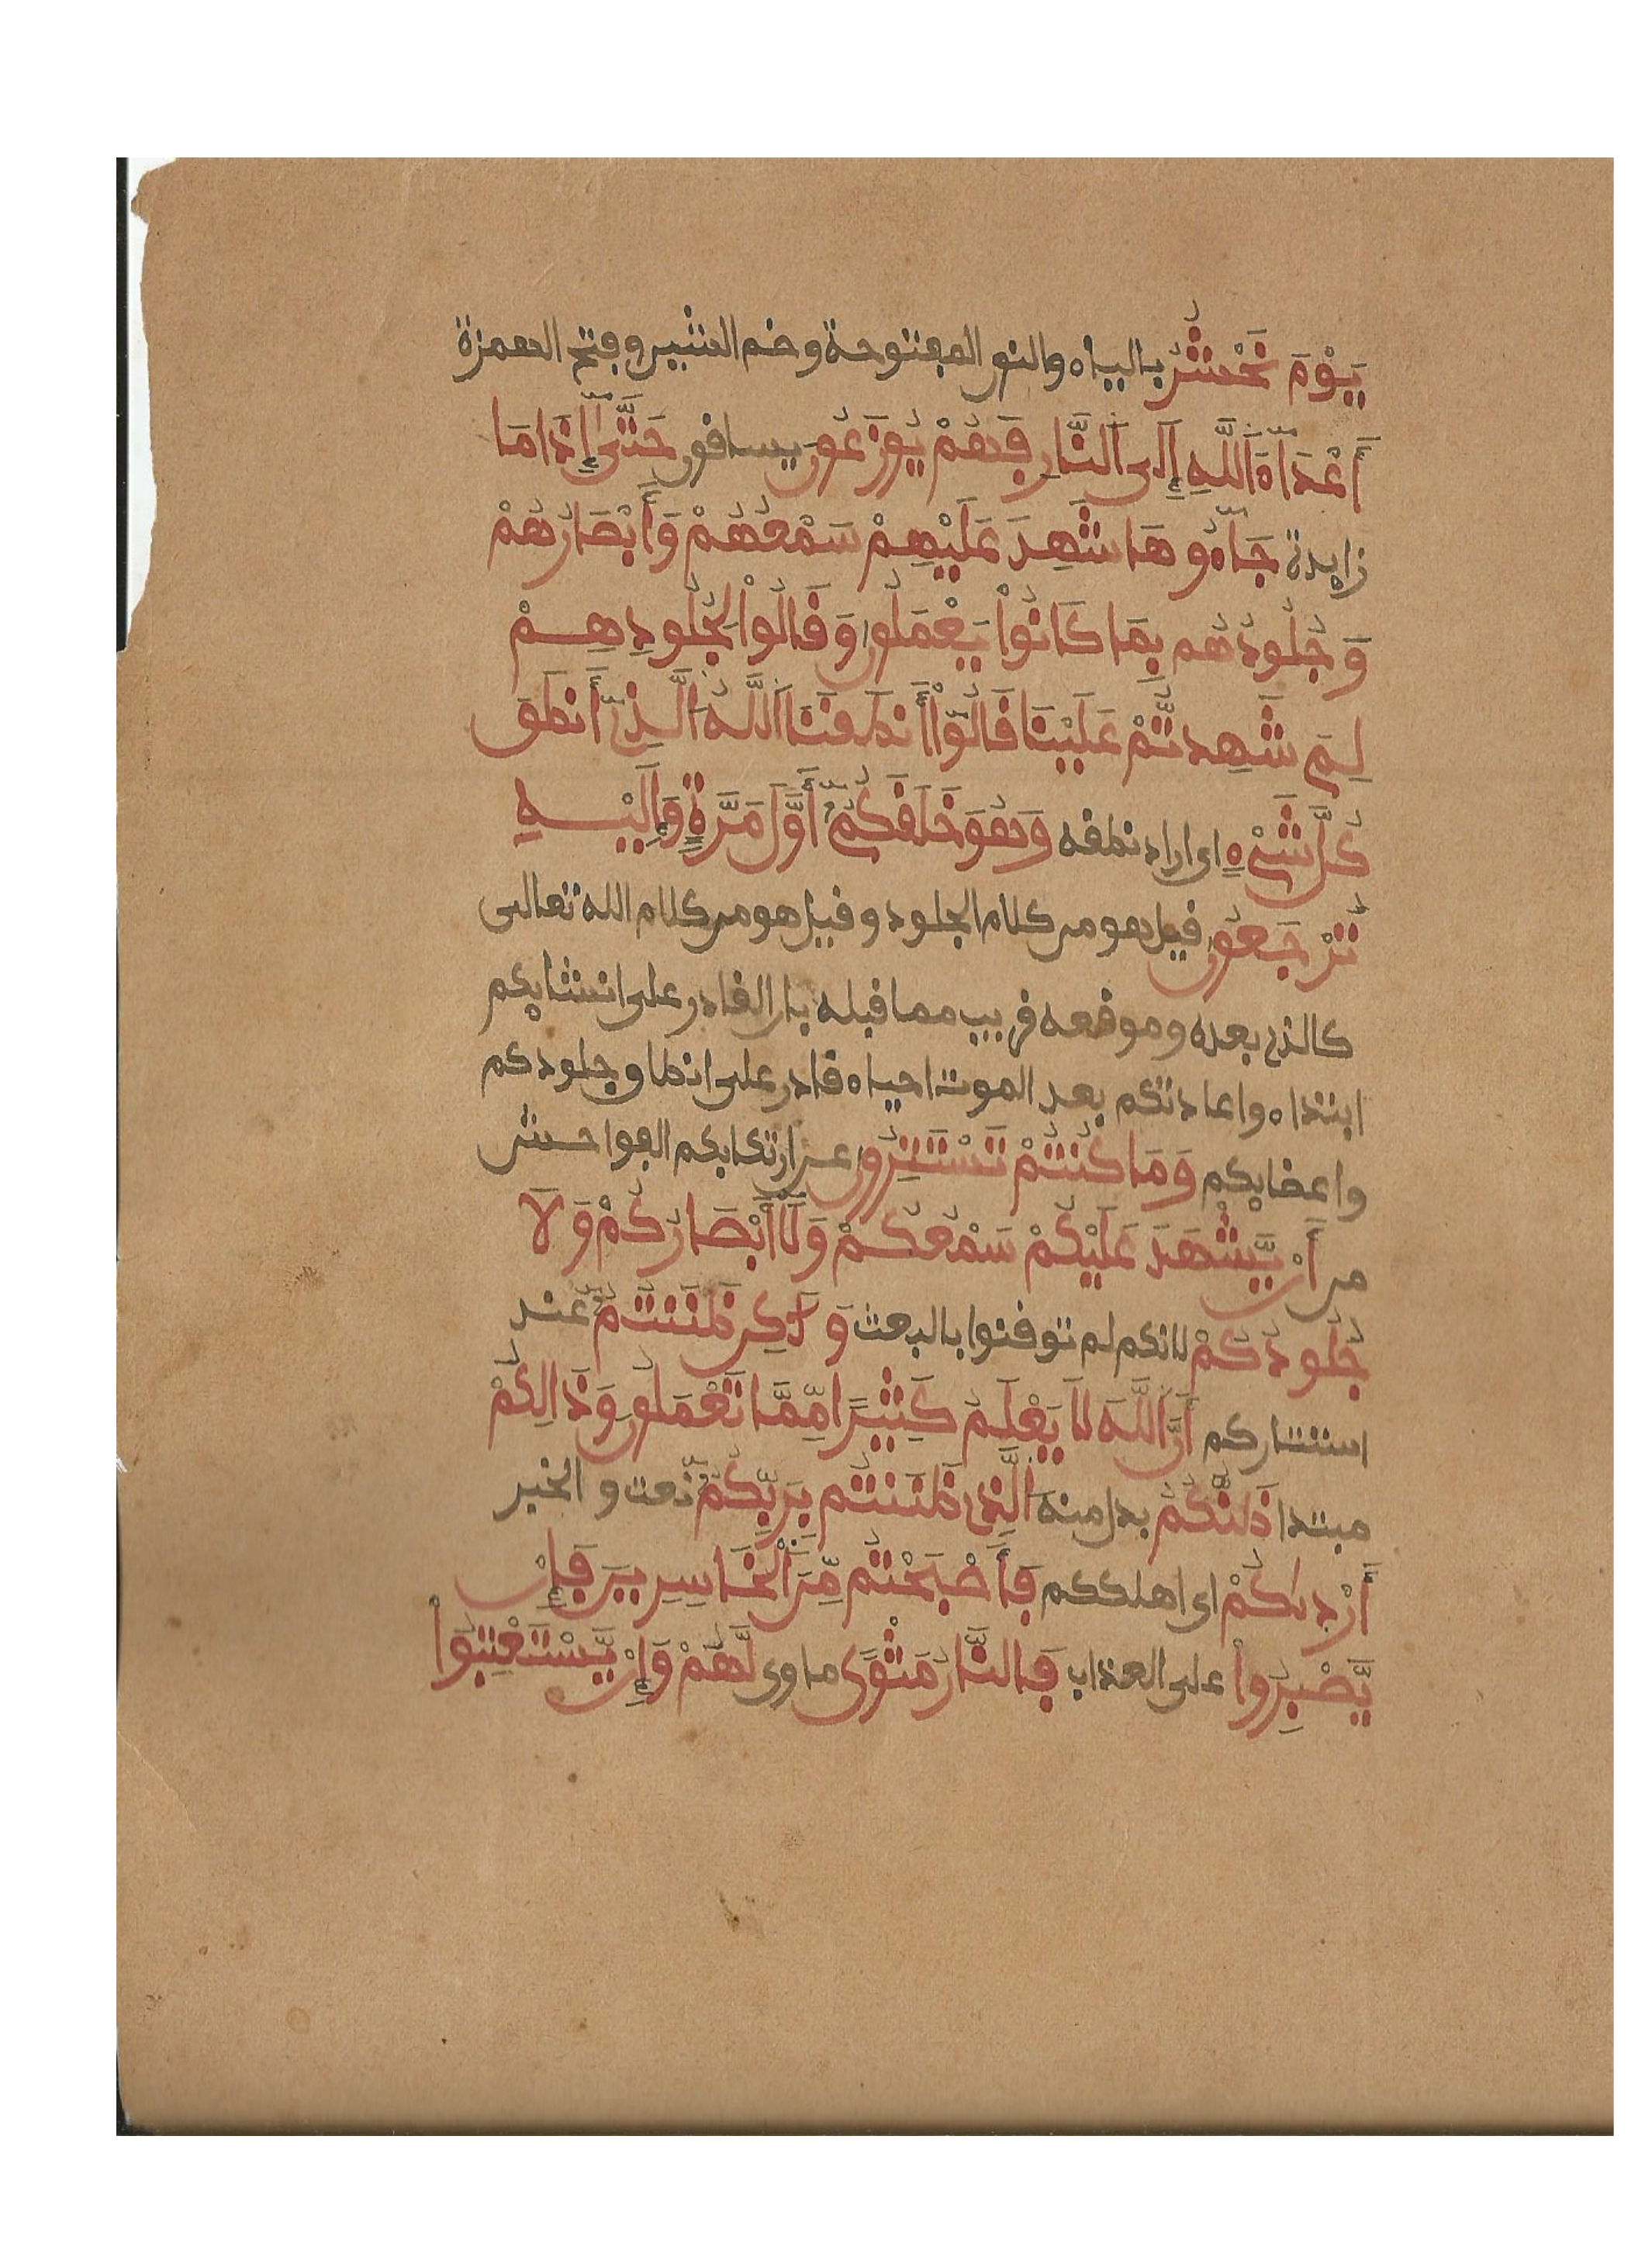 يَوْمَ نَحْشُرُ بالياء والنون المفتوحة وضم الشين وفتح الهمزة
أَعْدَآءَ اَللَّهِ إِلَى اَلنَّارِ فَهُمْ يُوزَعُونَ يساقون حَتَّىٰٓ إِذَا مَا
زايدة جَآءُوهَا شَهِدَ عَلَيْهِمْ سَمْعُهُمْ وَأَبْصَارُهُمْ
وَجُلُودُهُم بِمَا كَانُواْ يَعْمَلُونَ وَقَالُواْ لِجُلُودِهِمْ
لِمَ شَهِدتُّمْ عَلَيْنَا قَالُوٓاْ أَنطَقَنَا اَللَّهُ اَلَّذِىٓ أَنطَقَ
كُلَّ شَىْءٍ اى اراد نطقه وَهُوَ خَلَقَكُمُۥٓ أَوَّلَ مَرَّةٍ وَإِلَيْهِ
تُرْجَعُونَ قيل هو من كلام الجلود وقيل هو من كلام الله تعالى
كالذى بعده وموقعه قريب مما قبله بان القادر على انشايكم
ابتداء واعادتكم بعد الموت احياء قادر على انطاق جلودكم
واعضايكم وَمَا كُنتُمْ تَسْتَتِرُونَ عن ارتكابكم الفواحش
من أَنْ يَّشْهَدَ عَلَيْكُمْ سَمْعُكُمْ وَلَآ أَبْصَارُكُمْ وَلَا
جُلُودُكُمْ لانكم لم توقنوا بالبعث وَلَٰكِن ظَنَنتُمُۥٓ عند
استتاركم أَنَّ اَللَّهَ لَا يَعْلَمُ كَثِيرًا مِّمَّا تَعْمَلُونَ وَذَالِكُمْ
مبتدا ظَنُّكُمُ بدل منه اَلَّذِى ظَنَنتُم بِرَبِّكُمُۥٓ نعت والخبر
أَرْدىٰكُمْ اى اهلككم فَأَصْبَحْتُم مِّنَ اَلْخَاسِرِينَ فَإِنْ
يَّصْبِرُواْ على العذاب فَالنَّارُ مَثْوًى ماوى لَّهُمْ وَإِنْ يَّسْتَعْتِبُواْ